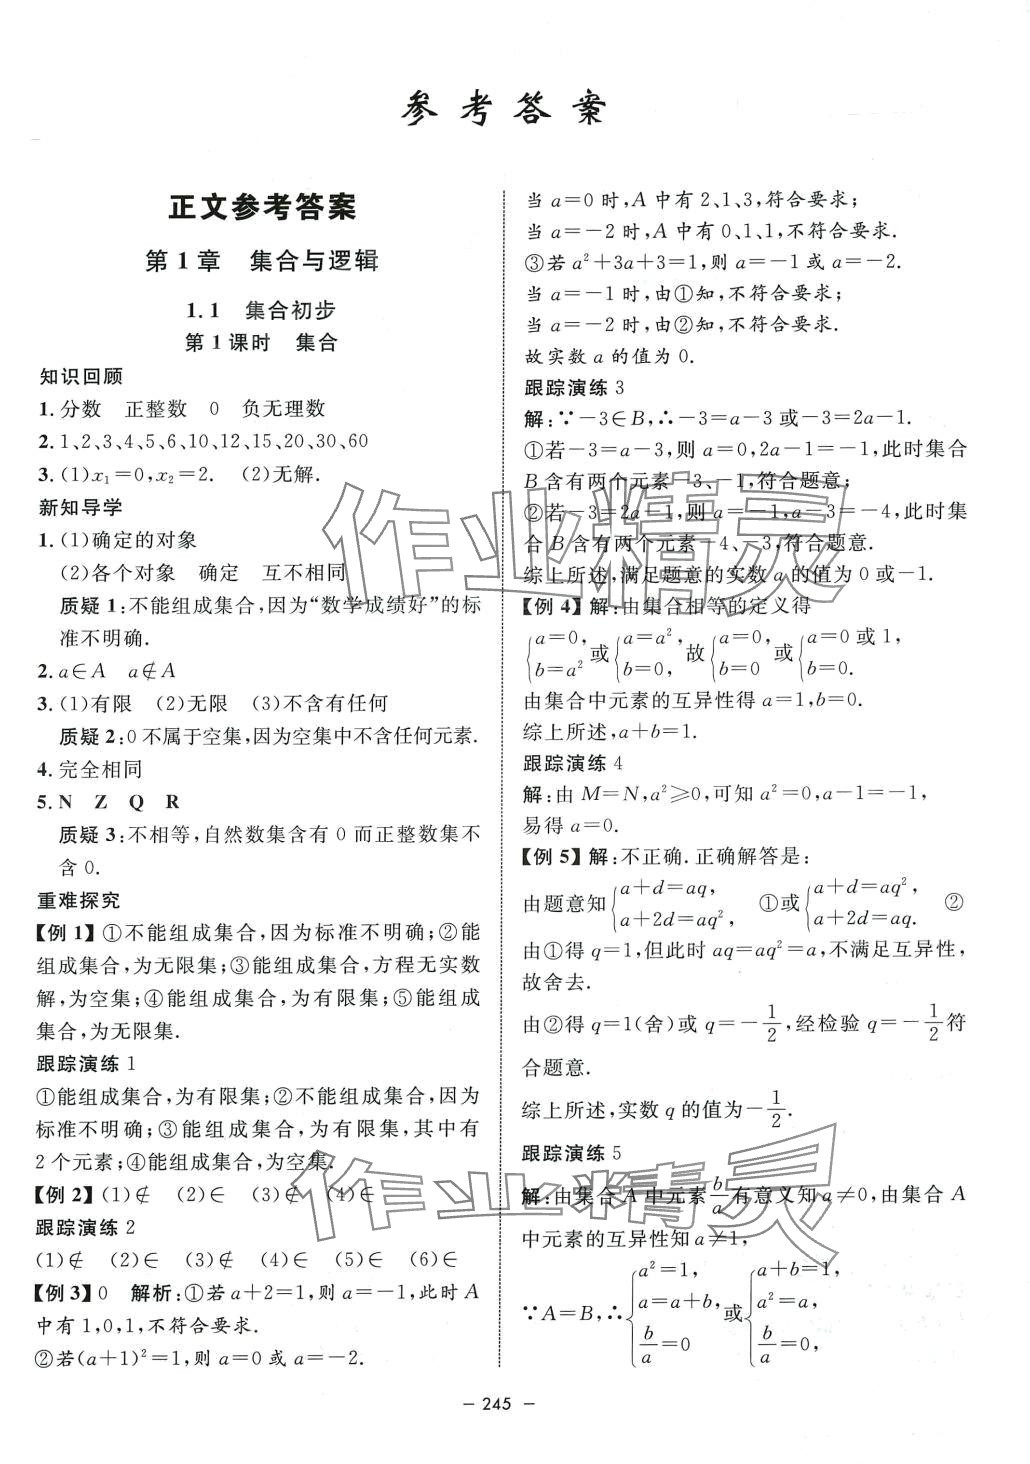 参考答案
正文参考答案
第1章 集合与逻辑
1.1 集合初步
第1课时 集合
知识回顾
1.分数 正整数 0 负无理数
2.1、2、3、4、5、6、10、12、15、20、30、60
3.(1)x₁=0,x₂=2. (2)无解.
新知导学
1.(1)确定的对象
(2)各个对象 确定 互不相同
质疑1:不能组成集合,因为“数学成绩好”的标
准不明确.
2.a∈A a∉A
3.(1)有限 (2)无限 (3)不含有任何
质疑2:0不属于空集,因为空集中不含任何元素.
4.完全相同
5.N Z Q R
质疑3:不相等,自然数集含有0而正整数集不
含0.
重难探究
【例1】①不能组成集合,因为标准不明确;②能
组成集合,为无限集;③能组成集合,方程无实数
解,为空集;④能组成集合,为有限集;⑤能组成
集合,为无限集.
跟踪演练1
①能组成集合,为有限集;②不能组成集合,因
为标准不明确;③能组成集合,为有限集,其中有
2个元素;④能组成集合,为空集.
【例2】(1)∉ (2)∈ (3)∉ (4)∈
跟踪演练2
(1)∉ (2)∈ (3)∉ (4)∈ (5)∈ (6)∈
【例3】0 解析:①若a+2=1,则a=-1,此时A
中有1,0,1,不符合要求.
②若(a+1)²=1,则a=0或a=-2.
当a=0时,A中有2、1、3,符合要求;
当a=-2时,A中有0、1、1,不符合要求.
③若a²+3a+3=1,则a=-1或a=-2.
当a=-1时,由①知,不符合要求;
当a=-2时,由②知,不符合要求.
故实数a的值为0.
跟踪演练3
解:∵-3∈B,∴-3=a-3或-3=2a-1.
①若-3=a-3,则a=0,2a-1=-1,此时集合
B含有两个元素-3、-1,符合题意;
②若-3=2a-1,则a=-1,a-3=-4,此时集
合B含有两个元素-4、-3,符合题意.
综上所述,满足题意的实数a的值为0或-1.
【例4】解:由集合相等的定义得
{a=0, b=a² 或 {a=a², b=0, 故 {a=0, b=0 或 {a=0或1, b=0.
由集合中元素的互异性得a=1,b=0.
综上所述,a+b=1.
跟踪演练4
解:由M=N,a²≥0,可知a²=0,a-1=-1,
易得a=0.
【例5】解:不正确.正确解答是:
由题意知{a+d=aq, a+2d=aq², ①或{a+d=aq², a+2d=aq. ②
由①得q=1,但此时aq=aq²=a,不满足互异性,
故舍去.
由②得q=1(舍)或q=-1/2,经检验q=-1/2符
合题意.
综上所述,实数q的值为-1/2.
跟踪演练5
解:由集合A中元素b/a有意义知a≠0,由集合A
中元素的互异性知a≠1,
∵A=B,∴{a²=1, a=a+b, b/a=0 或{a+b=1, a²=a, b/a=0,
- 245 -
作业精灵
作业精灵